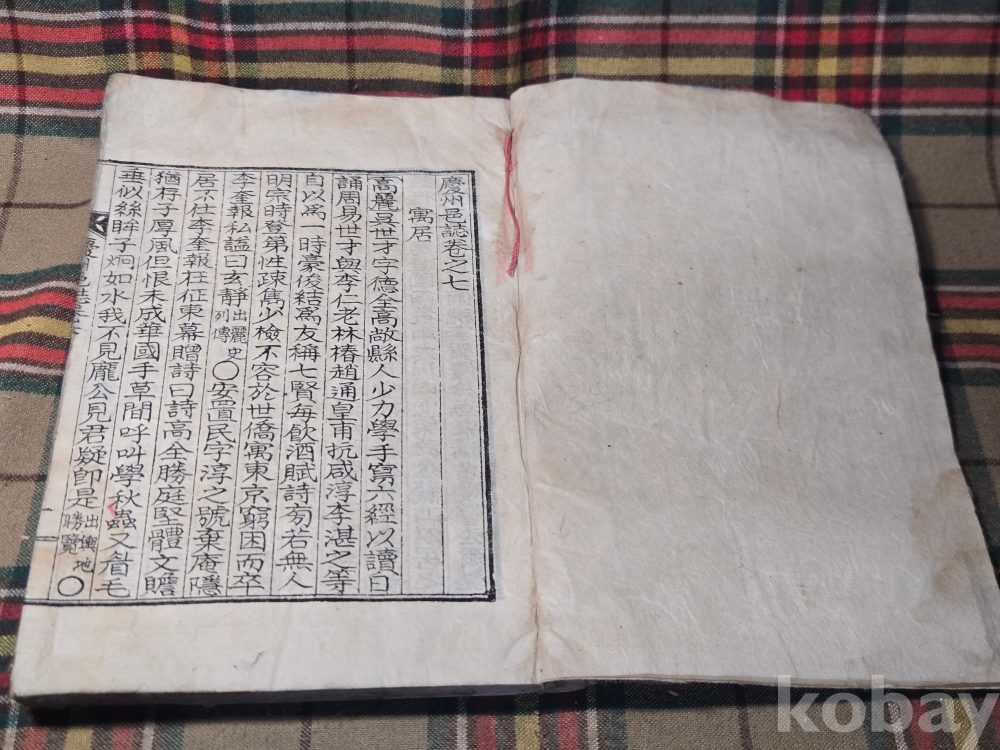 慶州邑誌卷之七
寓居
高麗吳世才字德全高敞縣人少力學手寫六經以讀日
誦周易世才與李仁老林椿趙通皇甫抗咸淳李湛之等
自以爲一時豪俊結爲友稱七賢每飮酒賦詩旁若無人
明宗時登第性疎雋少檢不容於世僑寓東京窮困而卒
李奎報私諡曰玄靜出麗史列傳○安置民字淳之號棄庵隱
居不仕李奎報在征東幕贈詩曰詩高全勝庭堅體文贍
猶存子厚風但恨未成華國手草間呼叫學秋蟲又眉毛
垂似絲眸子炯如水我不見龐公見君疑卽是出輿地勝覽○
kobay